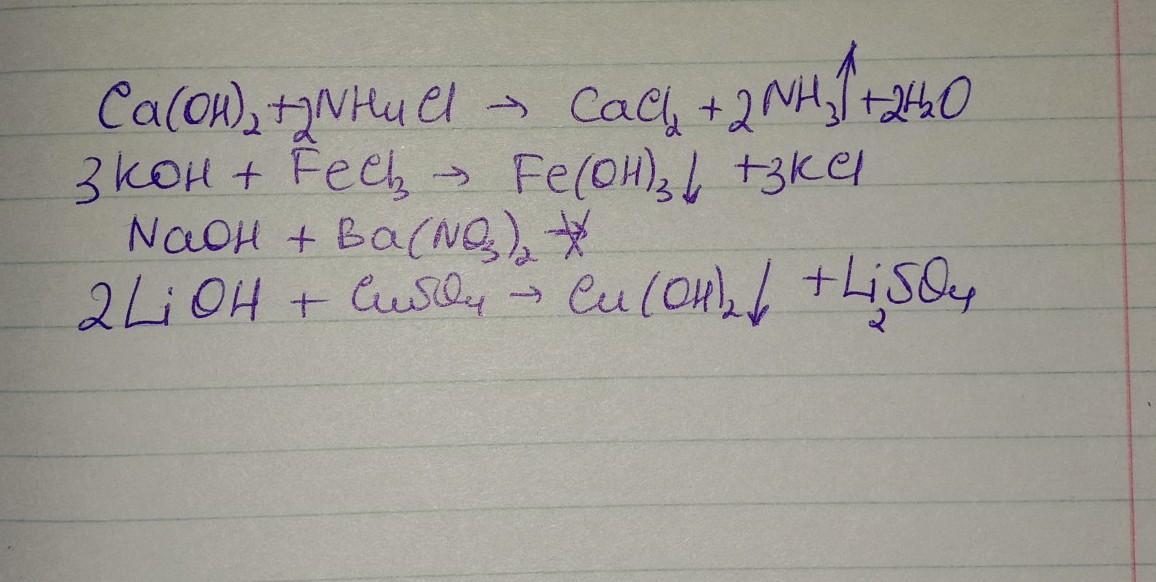 Ca(OH)₂ + 2NH₄Cl → CaCl₂ + 2NH₃↑ + 2H₂O
3KOH + FeCl₃ → Fe(OH)₃↓ + 3KCl
NaOH + Ba(NO₃)₂ ↛
2LiOH + CuSO₄ → Cu(OH)₂↓ + Li₂SO₄